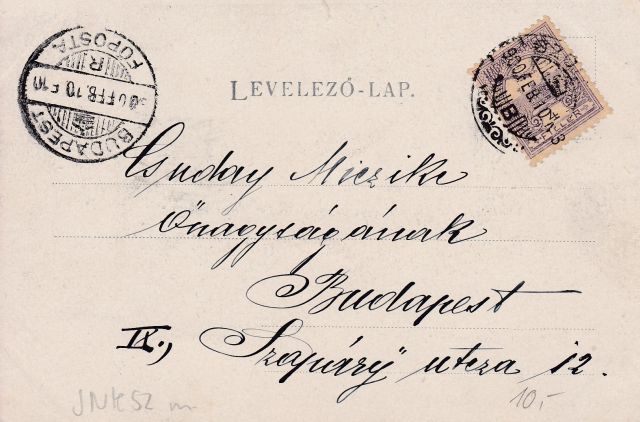 BUDAPEST
FŐPOSTA
FEB. 10
LEVELEZŐ-LAP.
Csuday Miczike
Őnagyságának
Budapest
IX., Szapáry utcza 12.
10,-